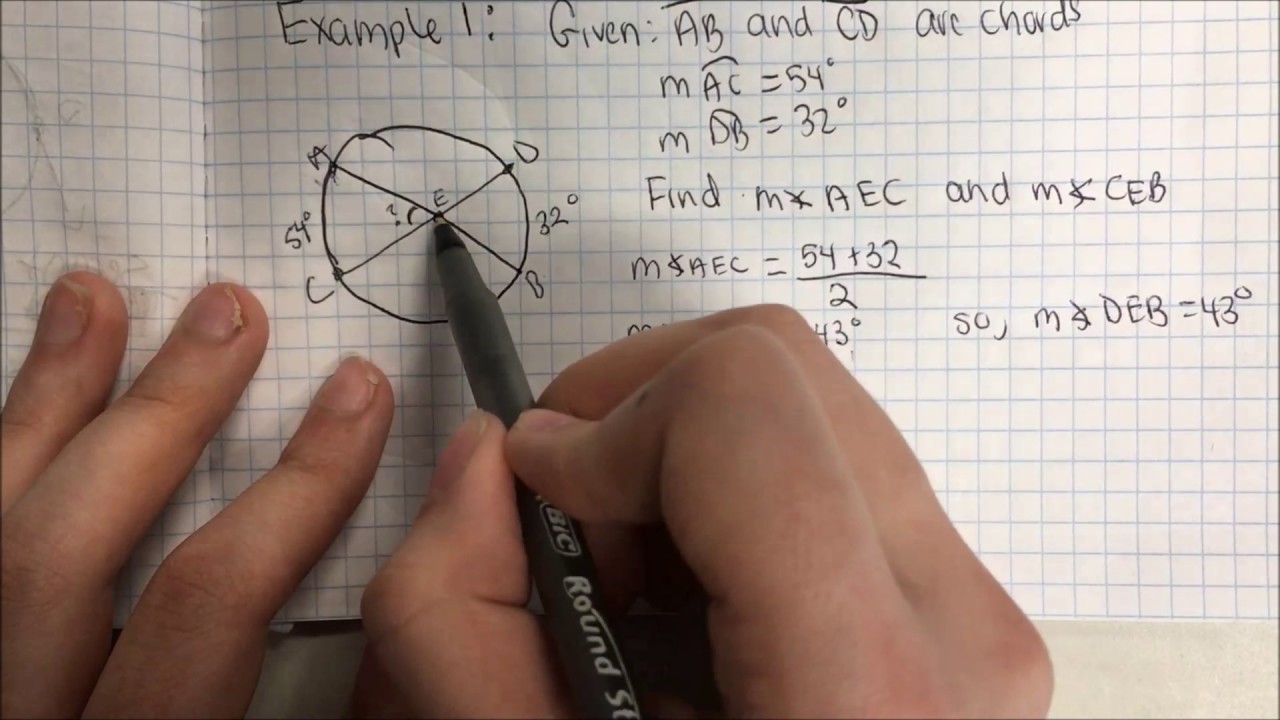 Example 1: Given: AB and CD are chords
m AC = 54°
m DB = 32°
Find m∡AEC and m∡CEB
m∡AEC = 54+32
2
43°
so, m∡DEB = 43°
A
D
E
?
54°
32°
C
B
BIC Round St